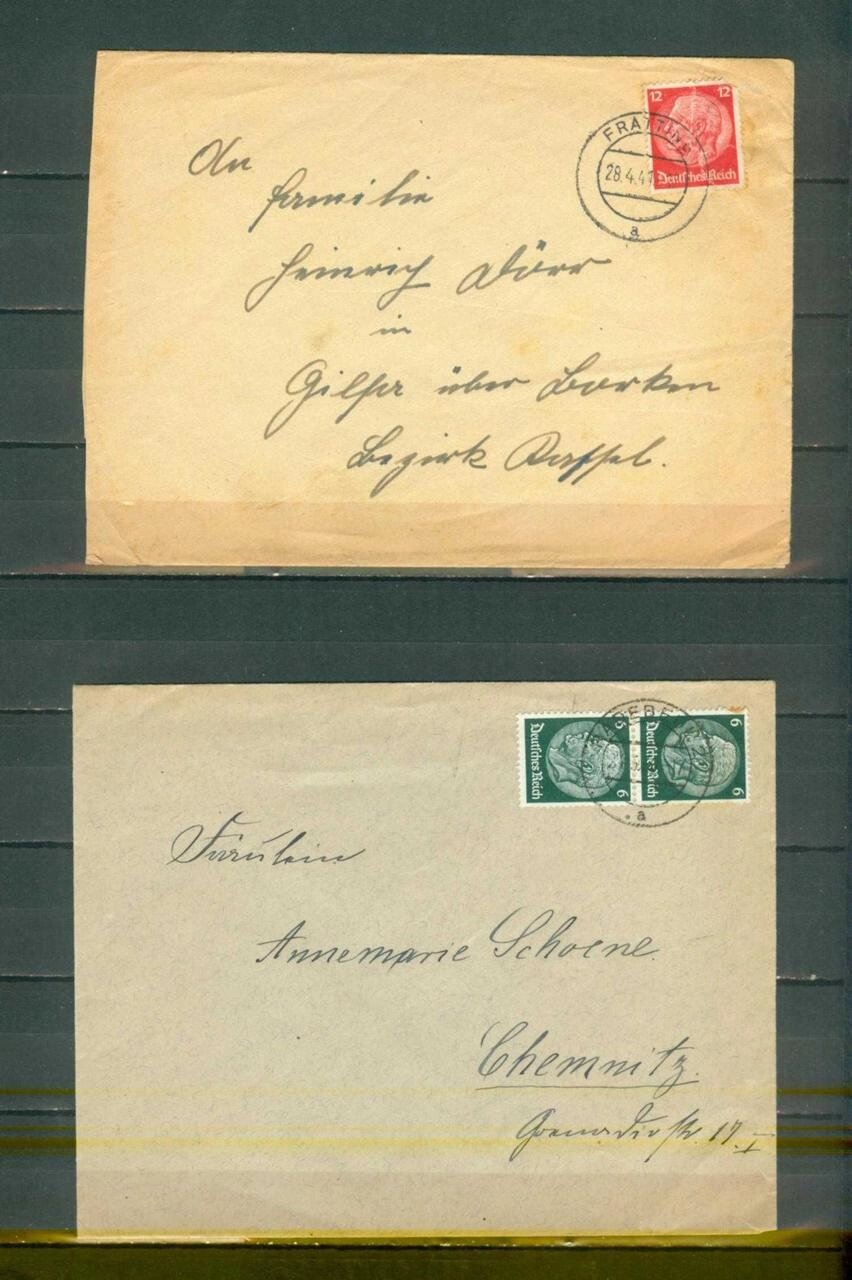 12 12
Deutsches Reich
FRATTING
28.4.41
a
An
Familie
Heinrich Dörr
in
Gilsa über Borken
Bezirk Kassel.
6 6
Deutsches Reich
6 6
Deutsches Reich
a
Fräulein
Annemarie Schoene.
Chemnitz.
17 I